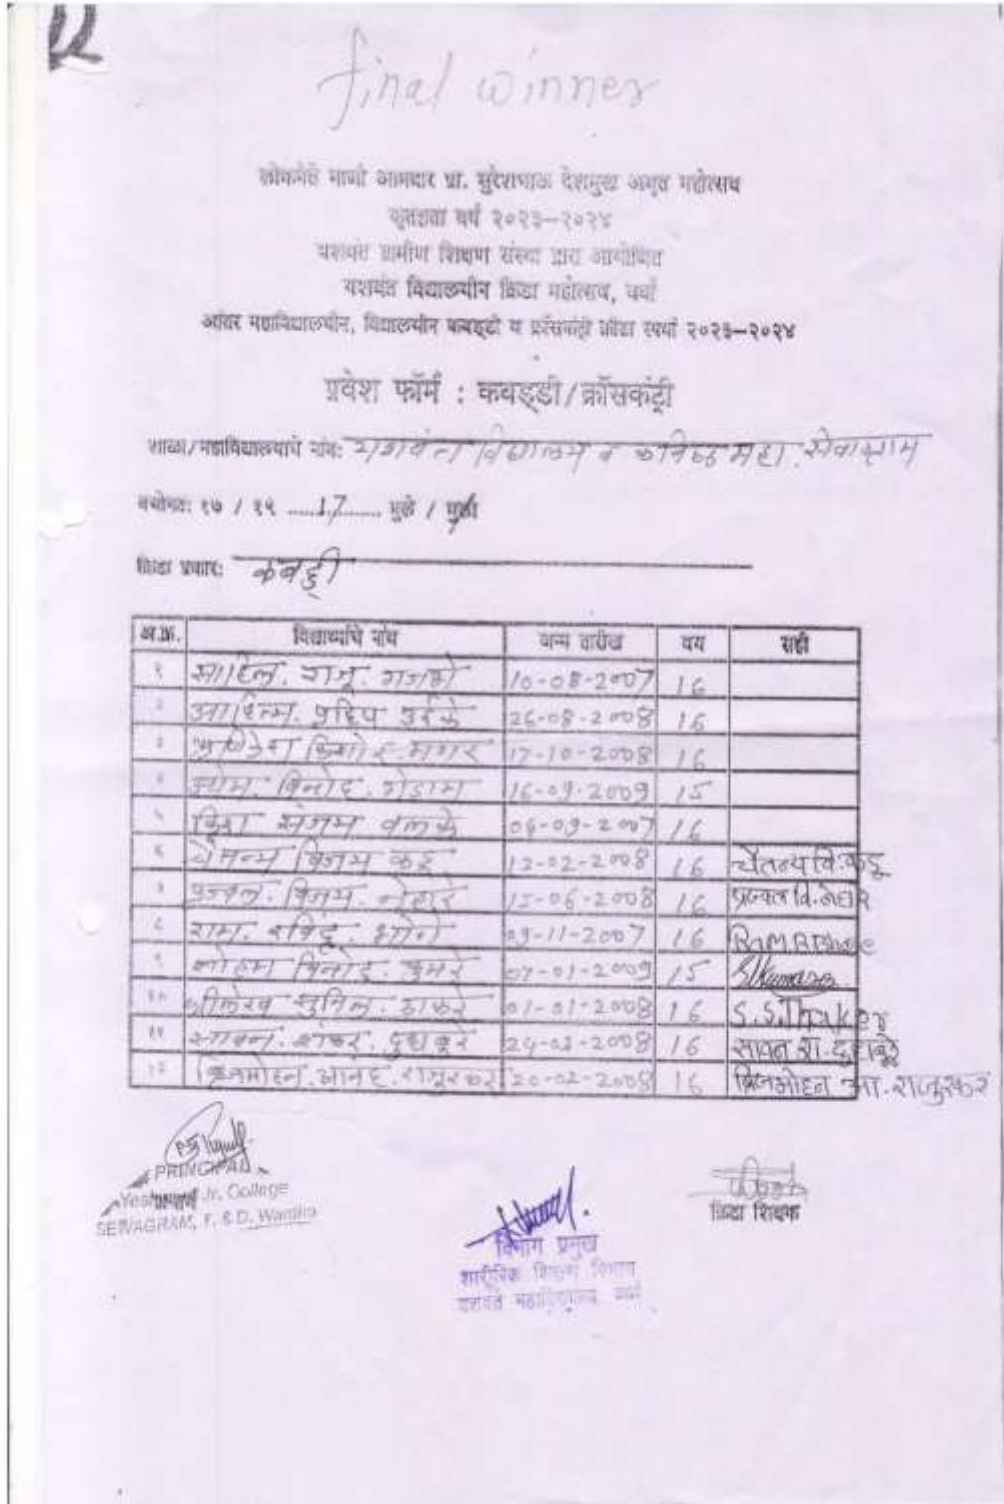 final winner
लोकनेते माजी आमदार प्रा. सुरेशभाऊ देशमुख अमृत महोत्सव
कृतज्ञता वर्ष २०२३–२०२४
यशवंत ग्रामीण शिक्षण संस्था द्वारा आयोजित
यशवंत विद्यालयीन क्रिडा महोत्सव, वर्धा
आंतर महाविद्यालयीन, विद्यालयीन कबड्डी व क्रॉसकंट्री क्रीडा स्पर्धा २०२३–२०२४
प्रवेश फॉर्म : कबड्डी/क्रॉसकंट्री
शाळा/महाविद्यालयाचे नांव: यशवंत विद्यालय व कनिष्ठ महा. सेवाग्राम
वयोगट: १७ / १९ ....17.... मुले / मुली
क्रिडा प्रकार: कबड्डी
अ.क्र. विद्यार्थ्यांचे नांव जन्म तारीख वय सही
१ साहिल. राजू. 10-08-2007 16
२ आदित्य. प्रदिप उईके 26-08-2008 16
३ किशोर. मगर 17-10-2008 16
४ ओम. विनोद. गेडाम 16-09-2009 15
५ संजय वलके 06-09-2007 16
६ चैतन्य विजय कडू 12-02-2008 16 चैतन्य वि. कडू
७ प्रज्वल. विजय. नेहारे 15-06-2008 16 प्रज्वल वि. नेहारे
८ राम. रविंद्र. भोगे 09-11-2007 16
९ सोहम विनोद. कुमरे 07-01-2009 15
१० श्रीलेख सुनिल. ठाकरे 01-01-2008 16 S.S.Thaker
११ सावन. शंकर. दुधकुरे 24-03-2008 16 सावन शं. दुधकुरे
१२ ब्रिजमोहन. आनंद. राजूरकर 20-02-2008 16 ब्रिजमोहन आ. राजुरकर
PRINCIPAL
Jr. College
SEWAGRAM, F. & D. Wardha
विभाग प्रमुख
शारीरिक शिक्षण विभाग
यशवंत महाविद्यालय, वर्धा
क्रिडा शिक्षक